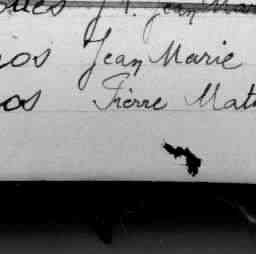 Jean Mar
ios Jean Marie
os Pierre Mat